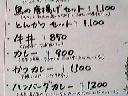 鶏の唐揚げセット ¥1,100
とんかつセット ¥1,100
牛丼 ¥850
カレー ¥900
かつカレー ¥1,100
ハンバーグカレー ¥1,200